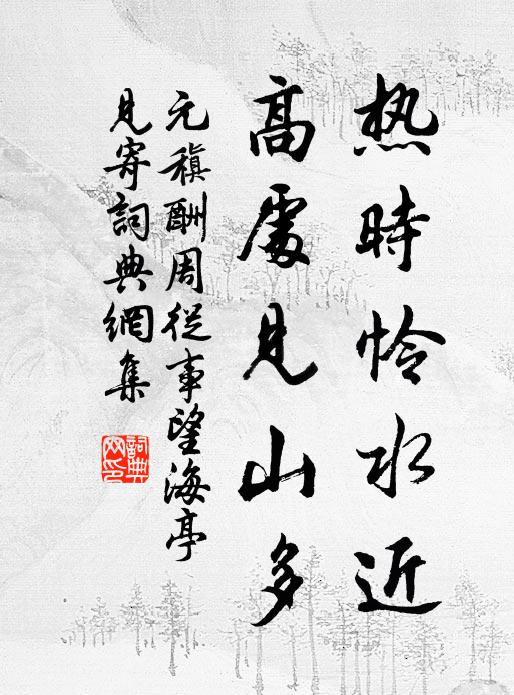 热時怜水近
高處見山多
元稹酬周從事望海亭
見寄詞典網集
詞典
网印